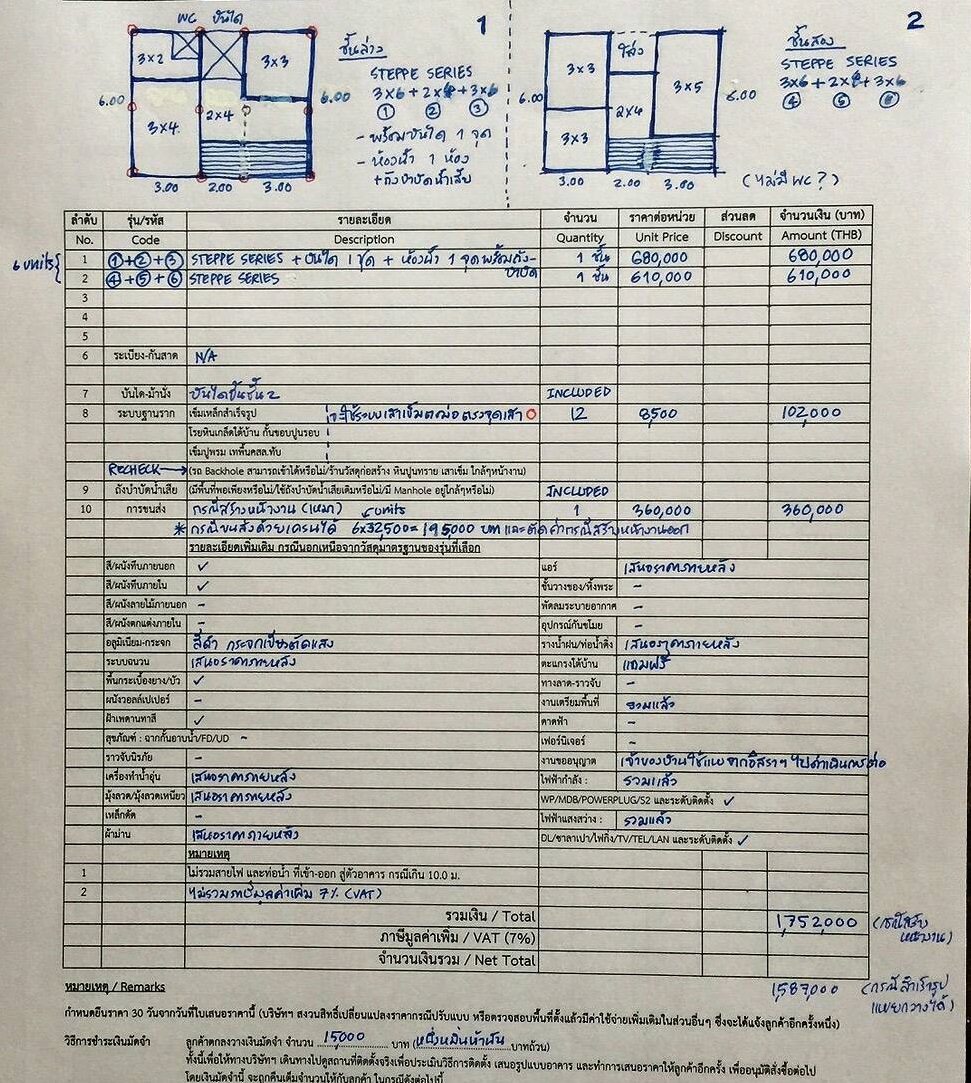 1
2
WC บันได
ชั้นล่าง
STEPPE SERIES
3x6 + 2x6 + 3x6
① ② ③
- พร้อมบันได 1 จุด
- ห้องน้ำ 1 ห้อง
+ถังบำบัดน้ำเสีย
3x2
3x3
6.00
6.00
3x4
2x4
3.00 2.00 3.00
ชั้นสอง
STEPPE SERIES
3x6 + 2x6 + 3x6
④ ⑤ ⑥
โล่ง
3x3
3x5
6.00
6.00
2x4
3x3
3.00 2.00 3.00
(ไม่มี WC?)
ลำดับ รุ่น/รหัส รายละเอียด จำนวน ราคาต่อหน่วย ส่วนลด จำนวนเงิน (บาท)
No. Code Description Quantity Unit Price Discount Amount (THB)
6 units
1 ①+②+③ STEPPE SERIES + บันได 1 ชุด + ห้องน้ำ 1 จุด พร้อมถังบำบัด 1 ชั้น 680,000 680,000
2 ④+⑤+⑥ STEPPE SERIES 1 ชั้น 610,000 610,000
3
4
5
6 ระเบียง-กันสาด N/A
7 บันได-ม้านั่ง บันไดขึ้นชั้น 2 INCLUDED
8 ระบบฐานราก เข็มเหล็กสำเร็จรูป ใช้ระบบเสาเข็มตอม่อ ตรงจุดเสา O 12 8500 102,000
โรยหินเกล็ดใต้บ้าน กั้นขอบปูนรอบ
เข็มปูพรม เทพื้นคสล.ทับ
RECHECK → (รถ Backhole สามารถเข้าได้หรือไม่/ร้านวัสดุก่อสร้าง หินปูนทราย เสาเข็ม ใกล้ๆหน้างาน)
9 ถังบำบัดน้ำเสีย (มีพื้นที่พอเพียงหรือไม่/ใช้ถังบำบัดน้ำเสียเดิมหรือไม่/มี Manhole อยู่ใกล้ๆหรือไม่) INCLUDED
10 การขนส่ง กรณีสร้างหน้างาน (เหมา) 1 360,000 360,000
units
* กรณีขนส่งด้วยเครนได้ 6x32,500 = 195,000 บาท และตัดค่ากรณีสร้างหน้างานออก
รายละเอียดเพิ่มเติม กรณีนอกเหนือจากวัสดุมาตรฐานของรุ่นที่เลือก
สี/ผนังทึบภายนอก ✓ แอร์ เสนอราคาภายหลัง
สี/ผนังทึบภายใน ✓ ชั้นวางของ/หิ้งพระ -
สี/ผนังลายไม้ภายนอก - พัดลมระบายอากาศ -
สี/ผนังตกแต่งภายใน - อุปกรณ์กันขโมย -
อลูมิเนียม-กระจก สีดำ กระจกเขียวตัดแสง รางน้ำฝน/ท่อน้ำดิ่ง เสนอราคาภายหลัง
ระบบฉนวน เสนอราคาภายหลัง ตะแกรงใต้บ้าน แถมฟรี
พื้นกระเบื้องยาง/บัว ✓ ทางลาด-ราวจับ -
ผนังวอลล์เปเปอร์ - งานเตรียมพื้นที่ รวมแล้ว
ฝ้าเพดานทาสี ✓ ดาดฟ้า -
สุขภัณฑ์ : ฉากกั้นอาบน้ำ/FD/UD - เฟอร์นิเจอร์ -
ราวจับนิรภัย - งานขออนุญาต เจ้าของบ้านใช้แบบจากอิสราฯ ไปดำเนินการต่อ
เครื่องทำน้ำอุ่น เสนอราคาภายหลัง ไฟฟ้ากำลัง : รวมแล้ว
มุ้งลวด/มุ้งลวดเหนียว เสนอราคาภายหลัง WP/MDB/POWERPLUG/S2 และระดับติดตั้ง ✓
เหล็กดัด - ไฟฟ้าแสงสว่าง : รวมแล้ว
ผ้าม่าน เสนอราคาภายหลัง DL/ซาลาเปา/ไฟกิ่ง/TV/TEL/LAN และระดับติดตั้ง ✓
หมายเหตุ
1 ไม่รวมสายไฟ และท่อน้ำ ที่เข้า-ออก สู่ตัวอาคาร กรณีเกิน 10.0 ม.
2 ไม่รวมภาษีมูลค่าเพิ่ม 7% (VAT)
รวมเงิน / Total 1,752,000 (กรณีสร้างหน้างาน)
ภาษีมูลค่าเพิ่ม / VAT (7%)
จำนวนเงินรวม / Net Total
หมายเหตุ / Remarks 1,587,000 (กรณีสำเร็จรูปแยยกวางได้)
กำหนดยืนราคา 30 วันจากวันที่ใบเสนอราคานี้ (บริษัทฯ สงวนสิทธิ์เปลี่ยนแปลงราคากรณีปรับแบบ หรือตรวจสอบพื้นที่ตั้งแล้วมีค่าใช้จ่ายเพิ่มเติมในส่วนอื่นๆ ซึ่งจะได้แจ้งลูกค้าอีกครั้งหนึ่ง)
วิธีการชำระเงินมัดจำ ลูกค้าตกลงวางเงินมัดจำ จำนวน 15000 บาท (หนึ่งหมื่นห้าพัน บาทถ้วน)
ทั้งนี้เพื่อให้ทางบริษัทฯ เดินทางไปดูสถานที่ติดตั้งจริงเพื่อประเมินวิธีการติดตั้ง เสนอรูปแบบอาคาร และทำการเสนอราคาให้ลูกค้าอีกครั้ง เพื่ออนุมัติสั่งซื้อต่อไป
โดยเงินมัดจำนี้ จะถูกคืนเต็มจำนวนให้กับลูกค้า ในกรณีดังต่อไปนี้